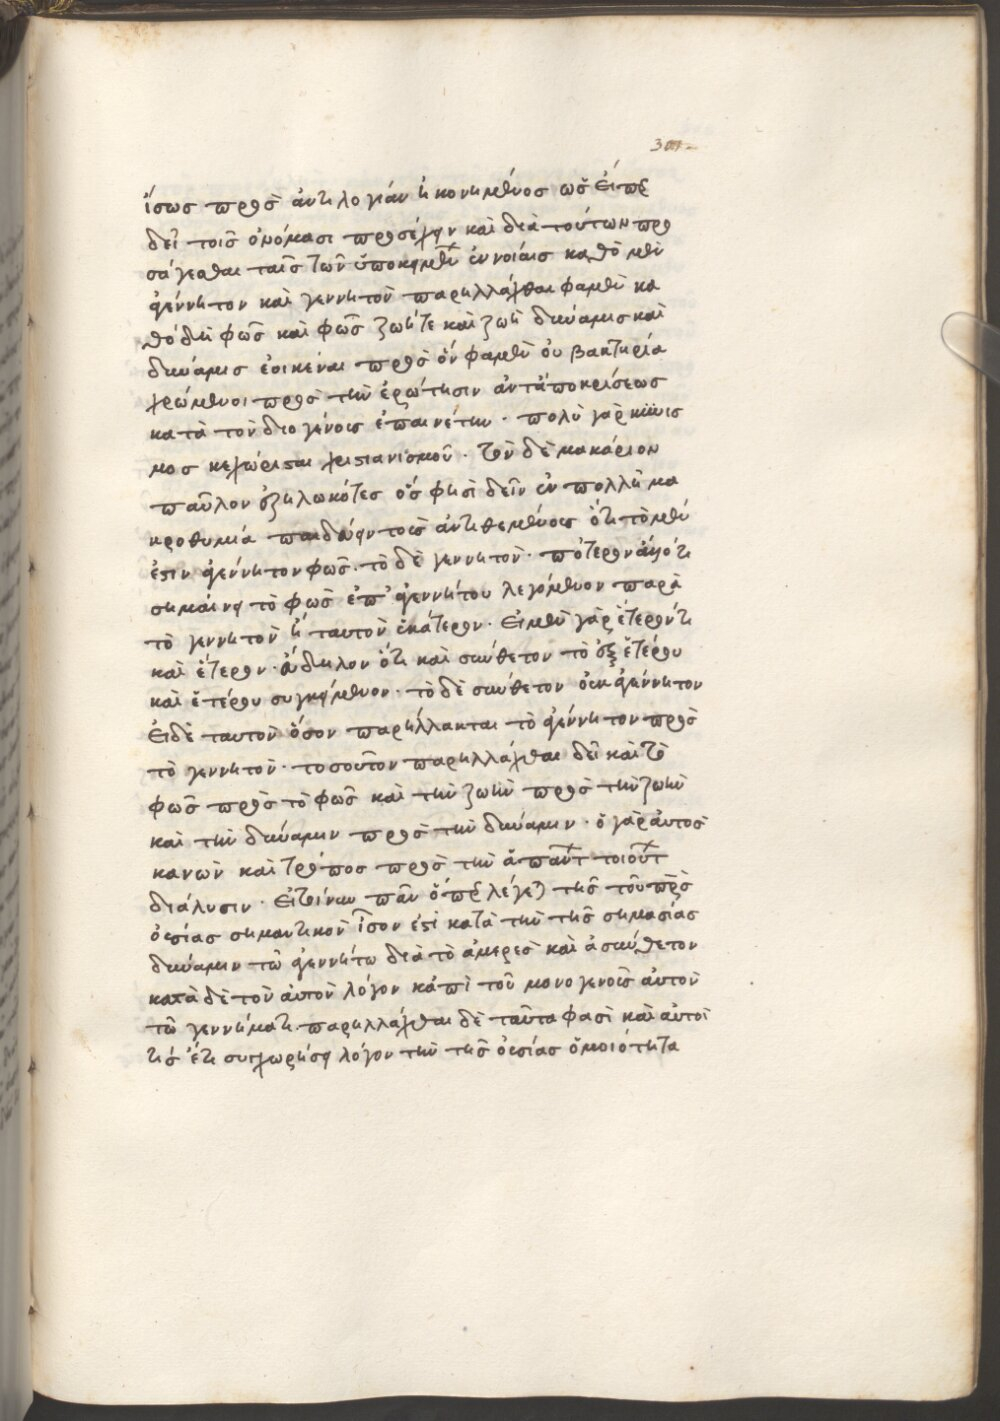 ἴσως πρὸς ἀντιλογίαν ἠκονημένος ὡς εἴπερ
δεῖ τοῖς ὀνόμασι προσέχειν καὶ διὰ τούτων προ
σάγεσθαι ταῖς τῶν ὑποκειμένων ἐννοίαις καθὸ μὲν
ἀγέννητον καὶ γεννητὸν παρηλλάχθαι φαμὲν κα
θὸ δὴ φῶς καὶ φῶς ζωή τε καὶ ζωὴ δύναμις καὶ
δύναμις ἐοικέναι πρὸς ὅν φαμὲν οὐ βακτηρία
χρώμενοι πρὸς τὴν ἐρώτησιν ἀντἀποκρίσεως
κατὰ τὸν διογένους ἐπαινέτην · πολὺ γὰρ κυνισ
μος κεχώρισται χριστιανισμοῦ · τὸν δὲ μακάριον
παῦλον ἐζηλωκότες ὅς φησὶ δεῖν ἐν πολλῆ μα
κροθυμία παιδεύειν τοὺς ἀντιθεμένους ὅτι τὸ μέν
ἐστιν ἀγέννητον φῶς · τὸ δὲ γεννητὸν · πότερον ἄλλό τι
σημαίνει τὸ φῶς ἐπ' ἀγεννήτου λεγόμενον παρὰ
τὸ γεννητὸν ἢ ταυτὸν ἑκάτερον · εἰ μὲν γὰρ ἕτερόν τι
καὶ ἕτερον · ἄδηλον ὅτι καὶ σύνθετον τὸ ἐξ ἑτέρου
καὶ ἑτέρου συγκείμενον · τὸ δὲ σύνθετον οὐκ ἀγέννητον
εἰ δὲ ταυτὸν ὅσον παρήλλακται τὸ ἀγέννητον πρὸς
τὸ γεννητὸν · τοσοῦτον παρηλλάχθαι δεῖ καὶ τὸ
φῶς πρὸς τὸ φῶς καὶ τὴν ζωὴν πρὸς τὴν ζωὴν
καὶ τὴν δύναμιν πρὸς τὴν δύναμιν · ὁ γὰρ αὐτὸς
κανὼν καὶ τρόπος πρὸς τὴν ἁπάντων τοιούτων
διάλυσιν · εἰ τοίνυν πᾶν ὅπερ λέγεται τῆς τοῦ πρς
οὐσίας σημαντικὸν ἴσον ἐστὶ κατὰ τὴν τῆς σημασίας
δύναμιν τῶ ἀγεννήτω διὰ τὸ ἀμερὲς καὶ ἀσύνθετον
κατὰ δὲ τὸν αὐτὸν λόγον κἀπὶ τοῦ μονογενοῦς αὐτὸν
τῶ γεννήματι · παρηλλάχθαι δὲ ταῦτα φασὶ καὶ αὐτοὶ
τίς ἔτι συγχωρήσει λόγον τὴν τῆς οὐσίας ὁμοιότητα